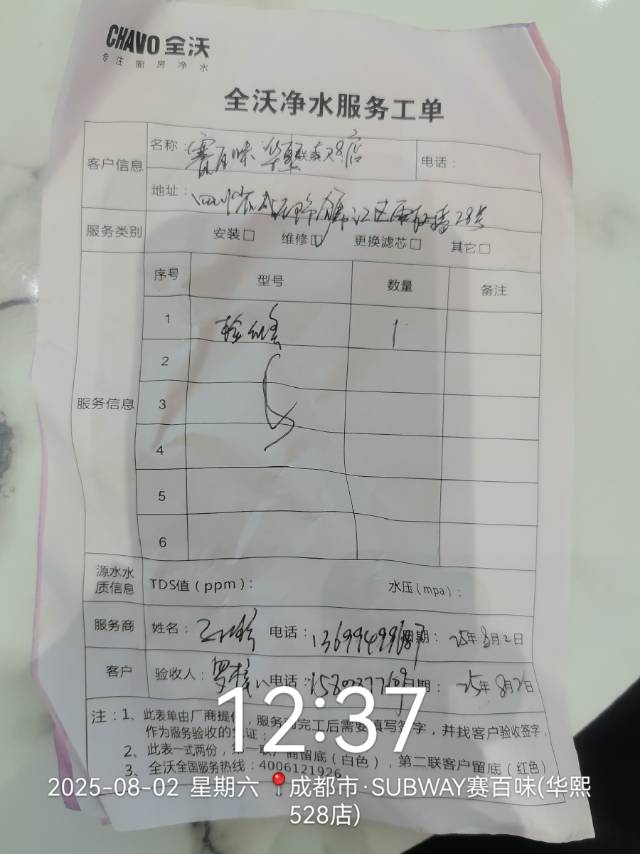 CHAVO 全沃
专注厨房净水
全沃净水服务工单
客户信息
名称： 赛百味 华熙528店
电话：
地址： 四川省成都
服务类别
安装□ 维修□ 更换滤芯□ 其它□
服务信息
序号 型号 数量 备注
1 检修 1
2
3
4
5
6
源水水质信息
TDS值（ppm）： 水压（mpa）：
服务商 姓名： 电话： 日期： 25年8月2日
客户 验收人： 电话： 日期： 25年8月2日
注：1、此表单由厂商提供，服务 完工后需要填写签字，并找客户验收签字，
作为服务验收的凭证；
2、此表一式两份，第一联厂商留底（白色），第二联客户留底（红色）
3、全沃全国服务热线：4006121926
12:37
2025-08-02 星期六 成都市·SUBWAY赛百味(华熙
528店)